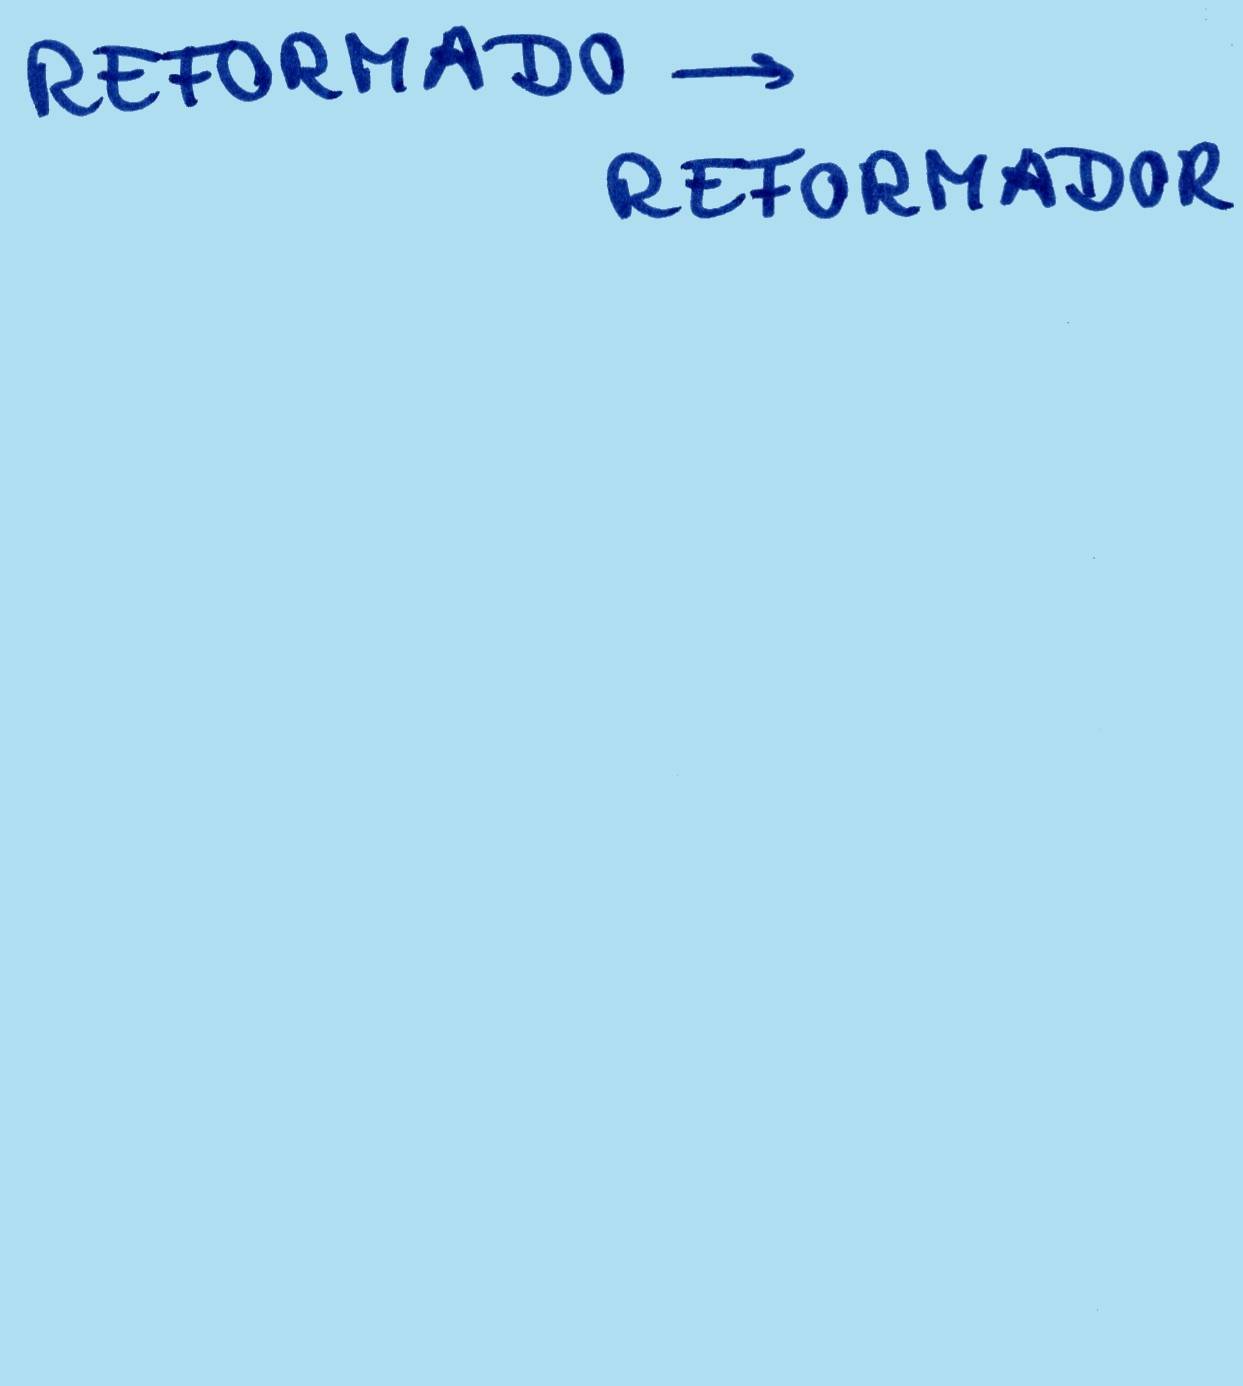 REFORMADO →
REFORMADOR